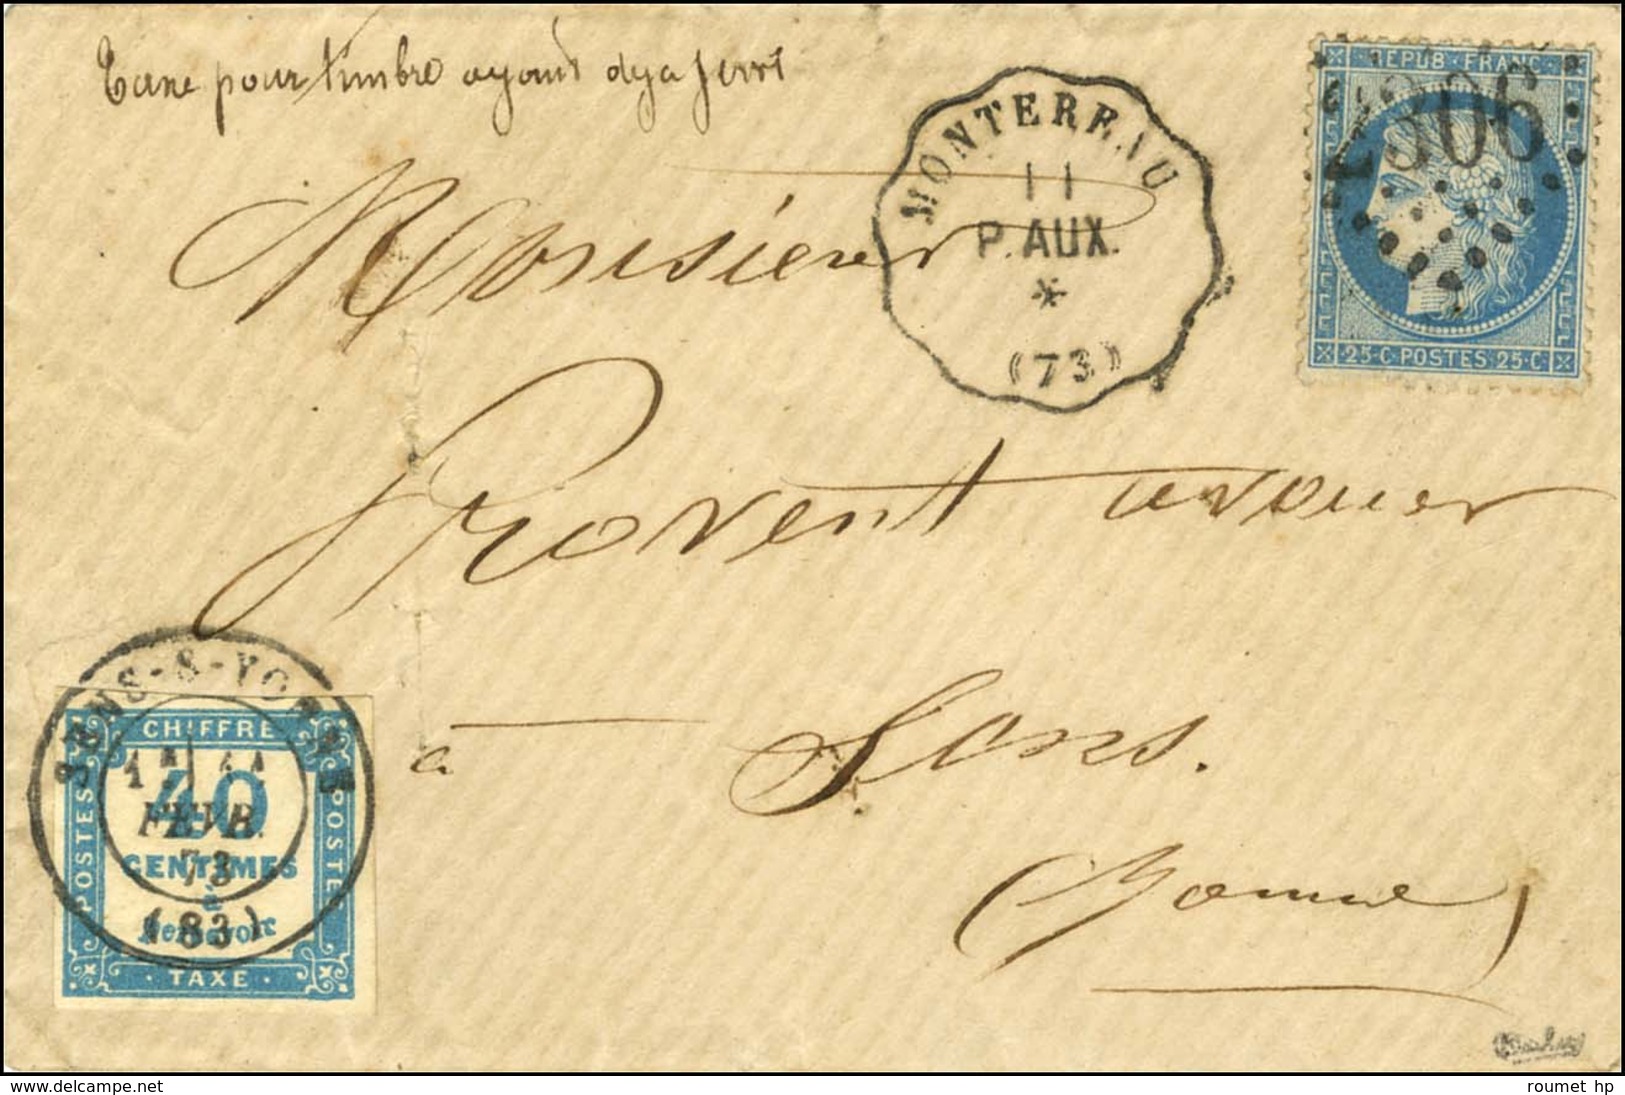 Taxe pour timbre ayant deja servi
MONTEREAU
11
P. AUX.
*
(73)
REPUB. FRANC.
306
25·C·POSTES 25·C
Monsieur
Provent avouer
à Sens.
Yonne
SENS-S-YONNE
FEVR.
73
(83)
CHIFFRE
POSTES
POSTES
40
CENTIMES
à
percevoir
· TAXE ·
roumet hp